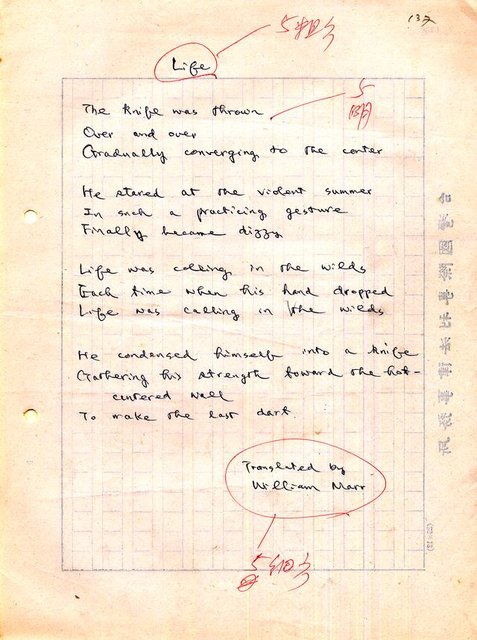 137
Life
The knife was thrown
Over and over
Gradually converging to the center
He stared at the violent summer
In such a practicing gesture
Finally became dizzy
Life was calling in the wilds
Each time when his hand dropped
Life was calling in the wilds
He condensed himself into a knife
Gathering his strength toward the hot-
centered wall
To make the last dart.
Translated by
William Marr
5
5
5